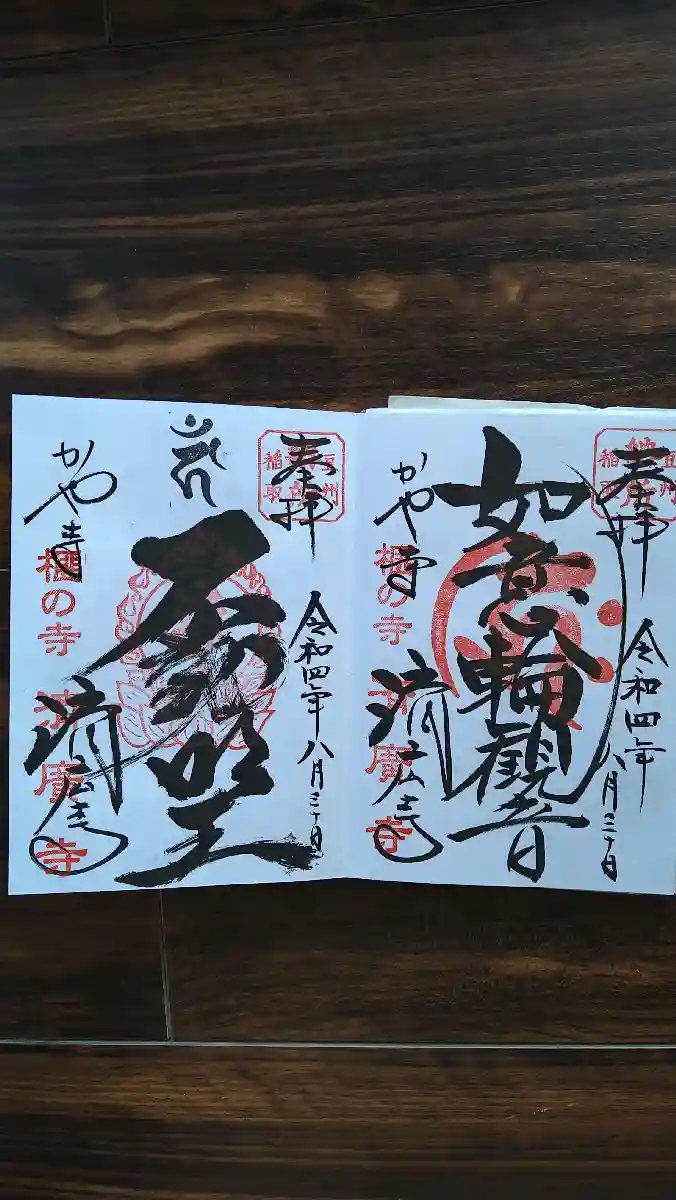 奉拝
令和四年八月三十日
如意輪観音
かや寺
榧の寺
済広寺
廣寺
奉拝
令和四年八月三十日
不動明王
かや寺
榧の寺
済広寺
廣寺